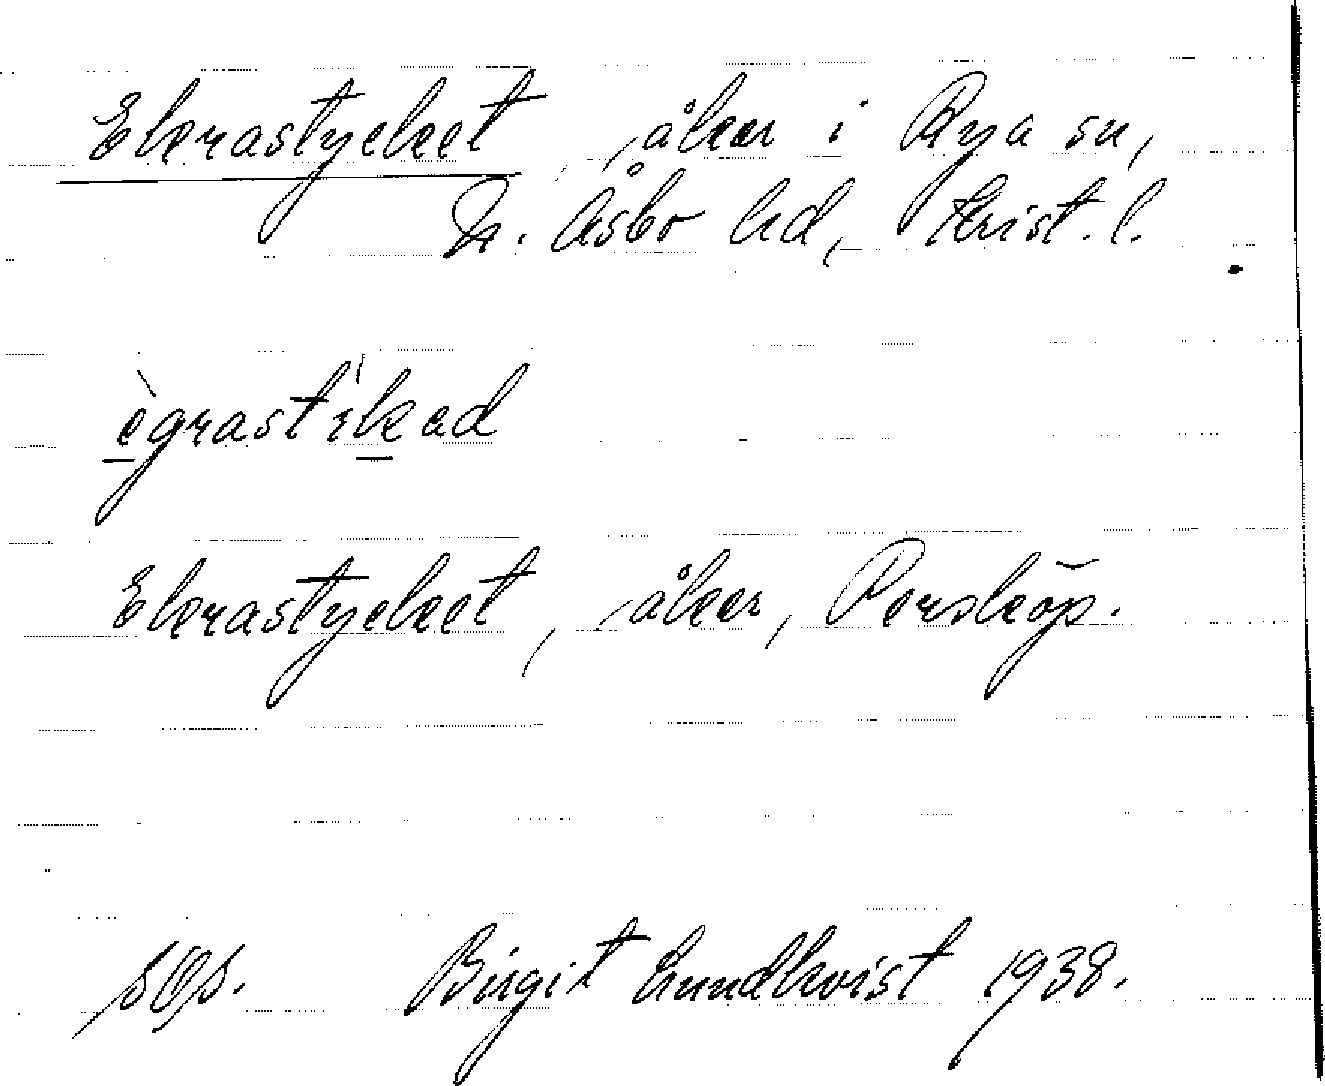 Ekrastycket, åker i Rya sn,
N. Åsbo hd, Krist. l.
ègrastìkad
Ekrastycket, åker, Perskōp.
Birgit Lundkvist 1938.